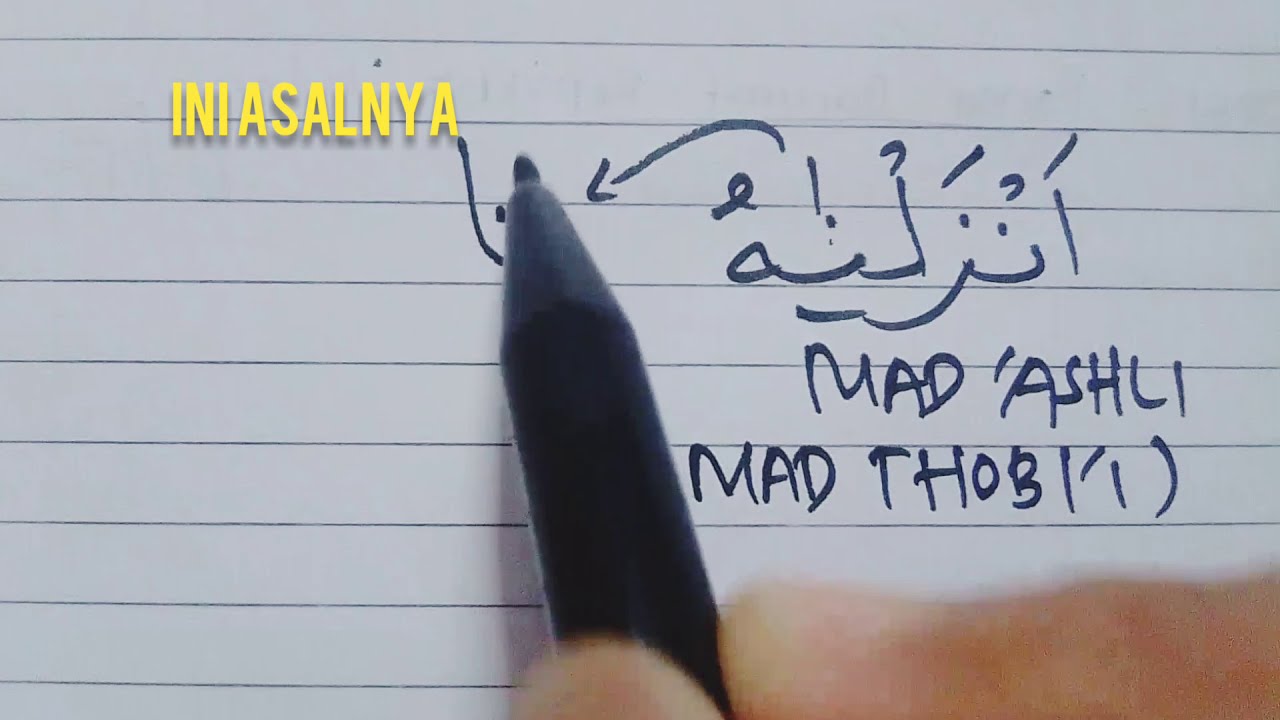 INI ASALNYA
اَنْزَلْنٰهُ
نا
MAD 'ASHLI
MAD THOBI'I )